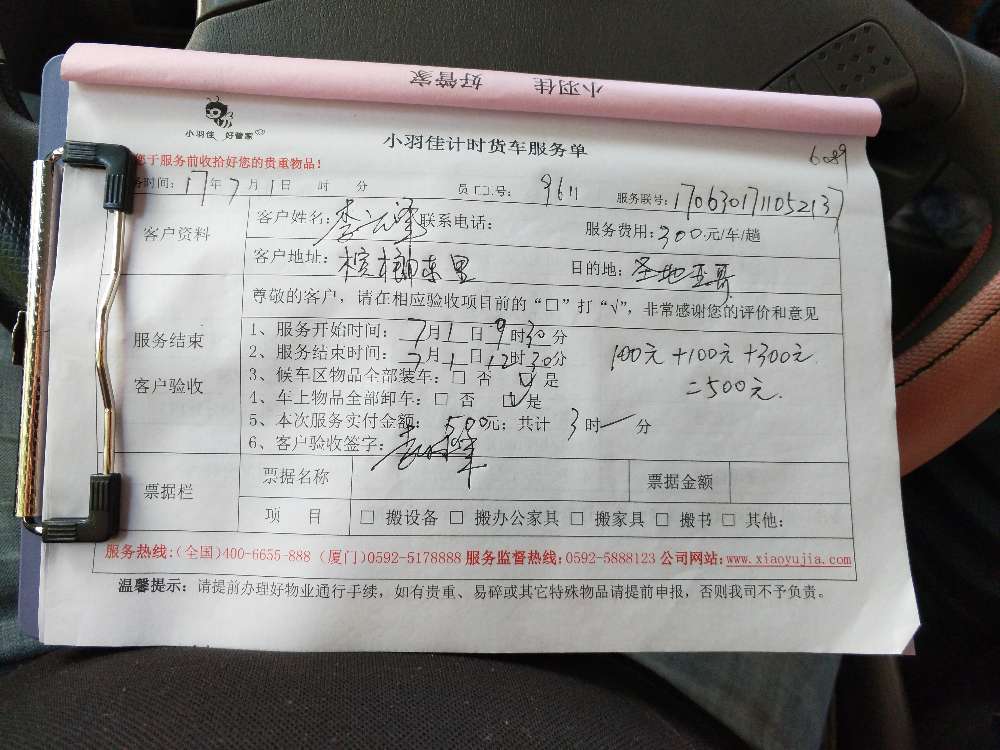 小羽佳 好管家
小羽佳 好管家
小羽佳计时货车服务单
6089
您于服务前收拾好您的贵重物品!
务时间: 17年7月1日 时 分 员工工号: 9611 服务联号: 1706301711052137
客户资料
客户姓名: 李 联系电话: 服务费用: 300元/车/趟
客户地址: 槟榔东里 目的地: 圣地亚哥
尊敬的客户，请在相应验收项目前的“□”打“√”，非常感谢您的评价和意见
服务结束
客户验收
1、服务开始时间: 7月1日9时30分
2、服务结束时间: 7月1日12时30分
3、候车区物品全部装车: □ 否 ☑ 是
4、车上物品全部卸车: □ 否 ☑ 是
5、本次服务实付金额: 500元; 共计 3时 分
6、客户验收签字:
100元+100元+300元
=500元
票据栏
票据名称 票据金额
项 目 □ 搬设备 □ 搬办公家具 □ 搬家具 □ 搬书 □ 其他:
服务热线:(全国)400-6655-888 (厦门)0592-5178888 服务监督热线:0592-5888123 公司网站:www.xiaoyujia.com
温馨提示: 请提前办理好物业通行手续，如有贵重、易碎或其它特殊物品请提前申报，否则我司不予负责。